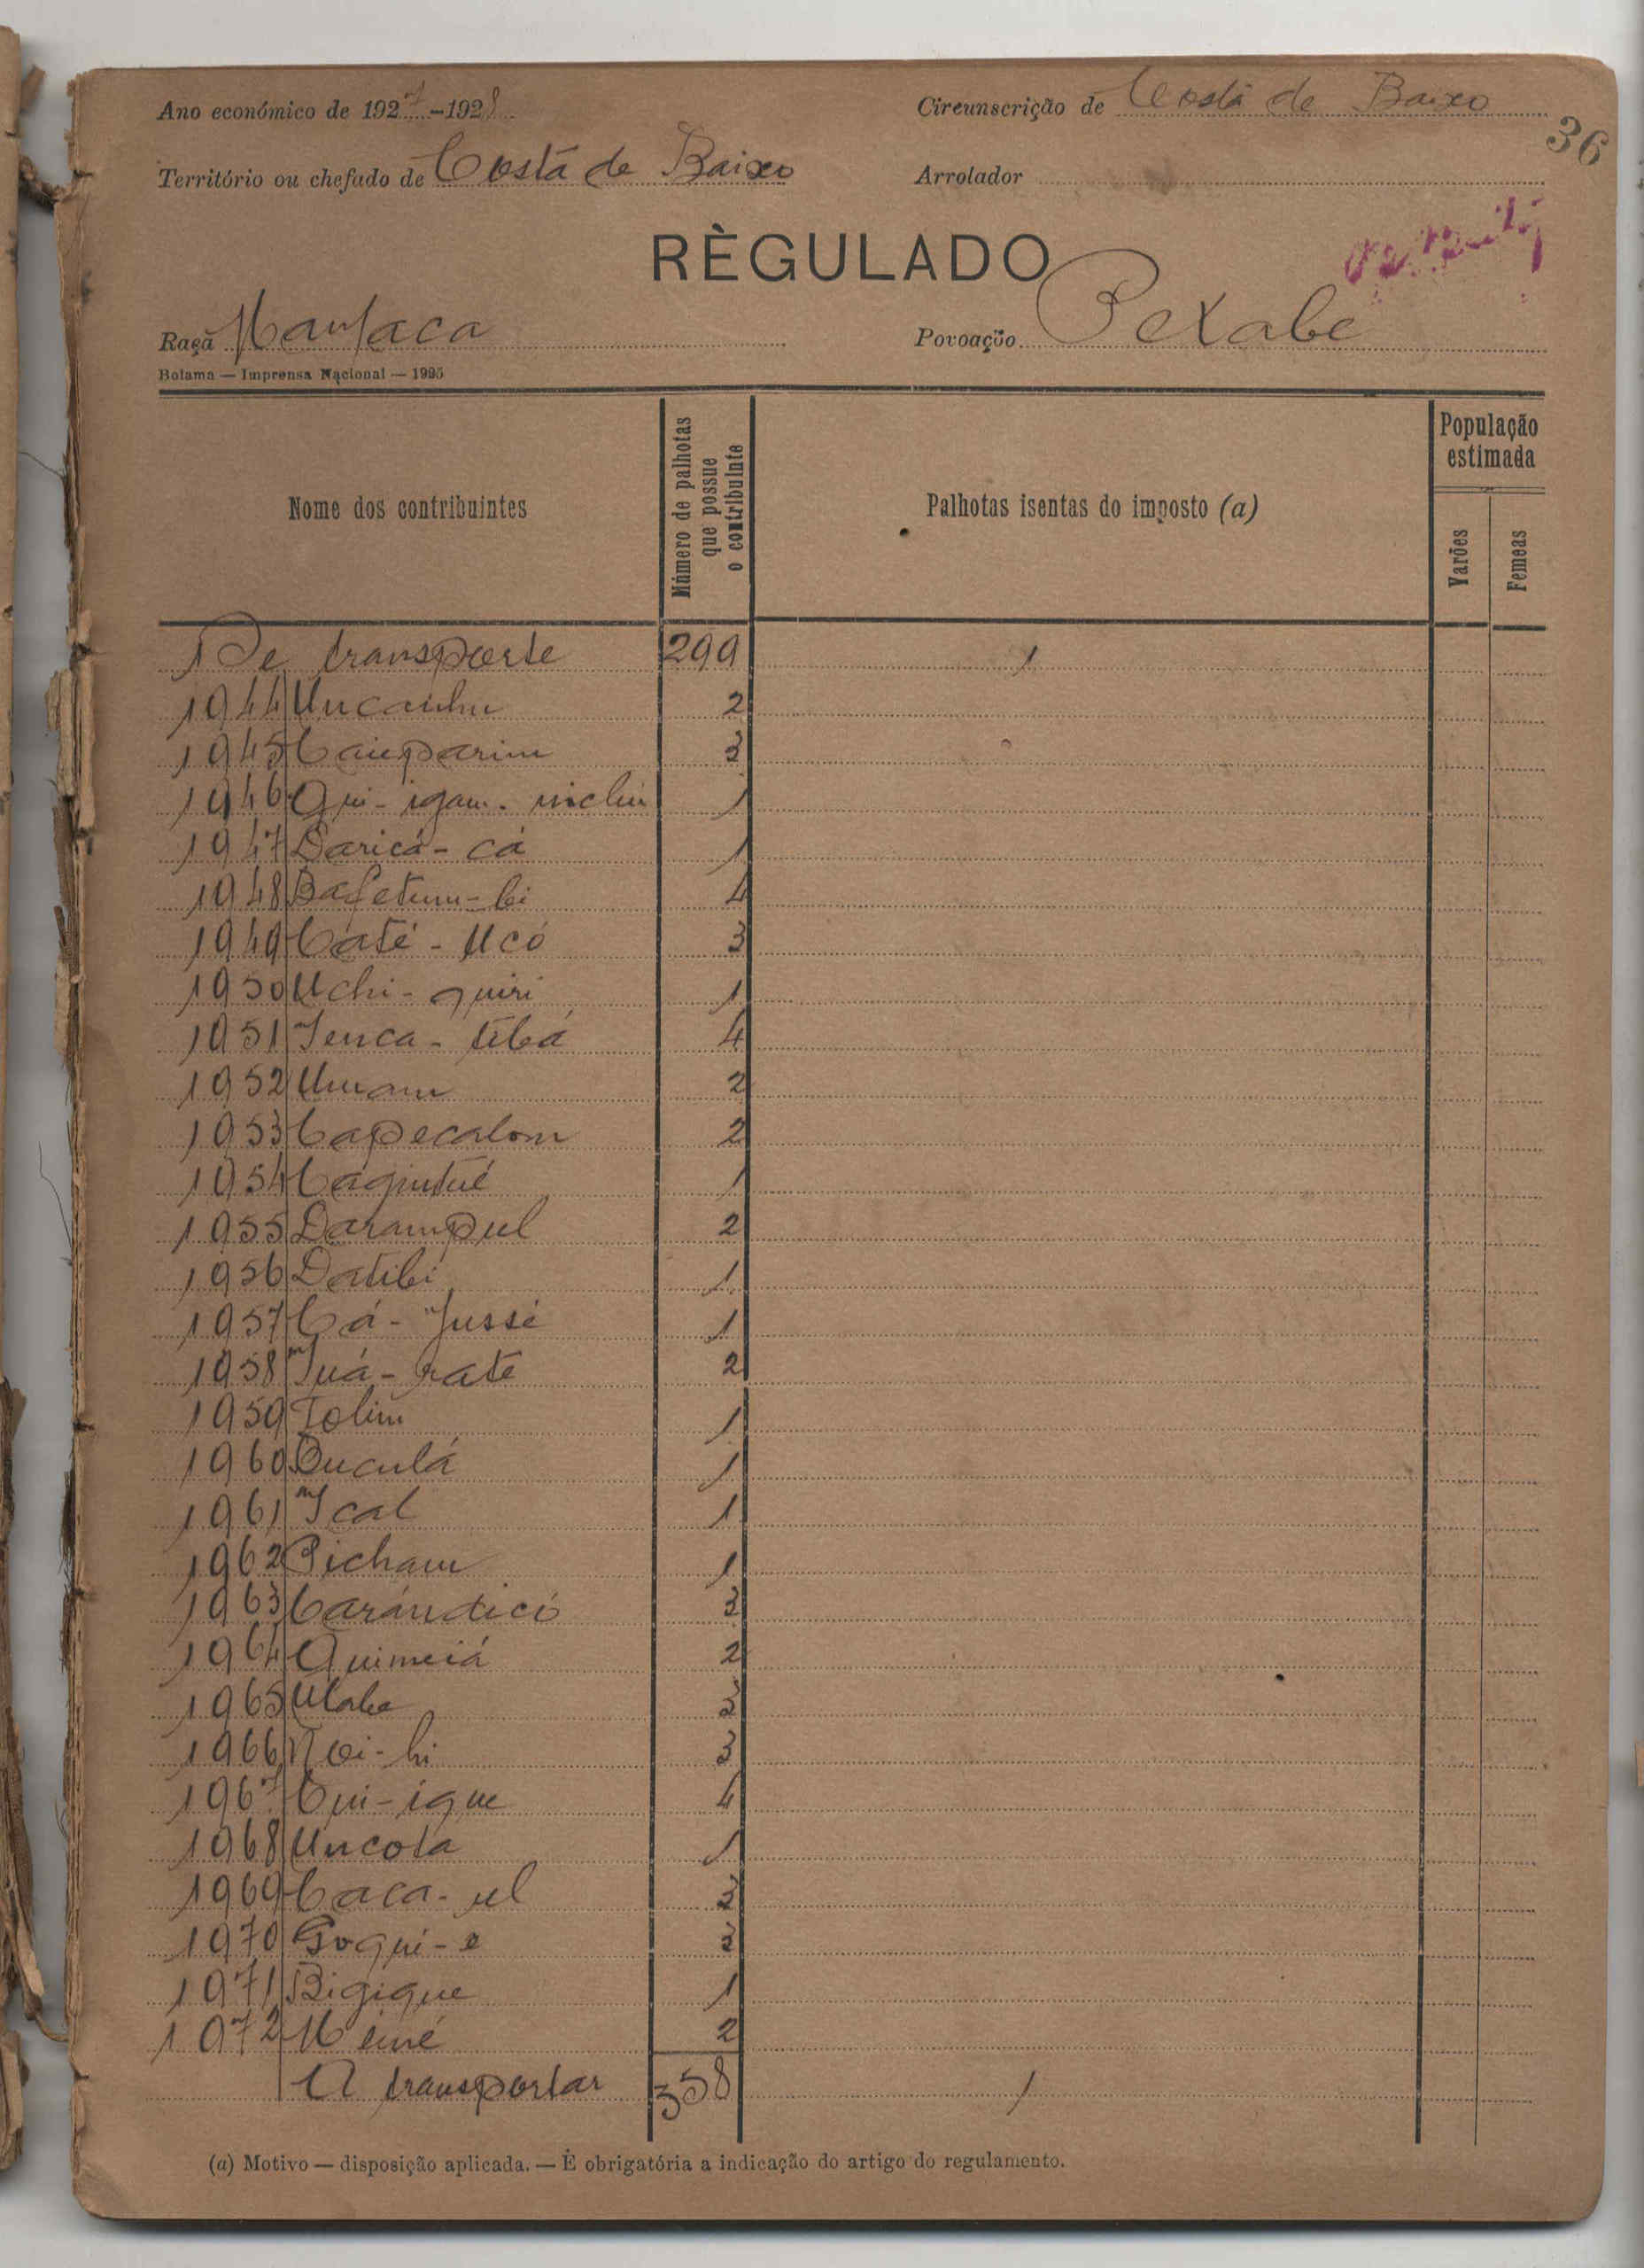 Ano económico de 1927-1928
Circunscrição de Costa de Baixo
36
Território ou chefado de Costa de Baixo
Arrolador
RÈGULADO
Raça Manjaca
Povoação Pexabe
Bolama — Imprensa Nacional — 1925
Nome dos contribuintes
Número de palhotas que possue o contribuinte
Palhotas isentas do imposto (a)
População estimada
Varões
Femeas
De transporte 299 1
1944 Uncanhu 2
1945 Caieparim 3
1946 Qui-igam- 1
1947 Daricá-cá 1
1948 Bafetum-bi 4
1949 Cáté-Ucó 3
1950 Uchi-quiri 1
1951 Jenca-tibá 4
1952 Umam 2
1953 Capecalom 2
1954 1
1955 Darampul 2
1956 Datibi 1
1957 Cá-Jussé 1
1958 2
1959 Tolim 1
1960 Buculá 1
1961 1
1962 Picham 1
1963 Carándicó 3
1964 Quimeiá 2
1965 Ulabe
1966 3
1967 4
1968 Uncota 1
1969 Caca-ul
1970 Goqui-e
1971 Bigique 1
1972 2
A transportar 358 1
(a) Motivo — disposição aplicada. — É obrigatória a indicação do artigo do regulamento.